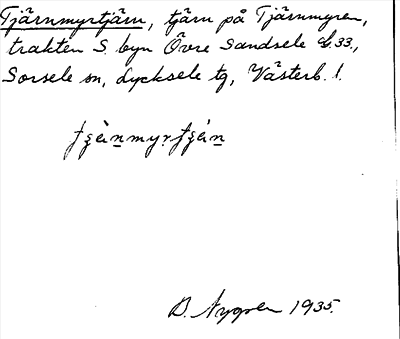 Tjärnmyrtjärn, tjärn på Tjärnmyren,
trakten S. byn Övre Sandsele L.33.,
Sorsele sn, Lycksele tg, Västerb. l.
B. Nygren 1935.